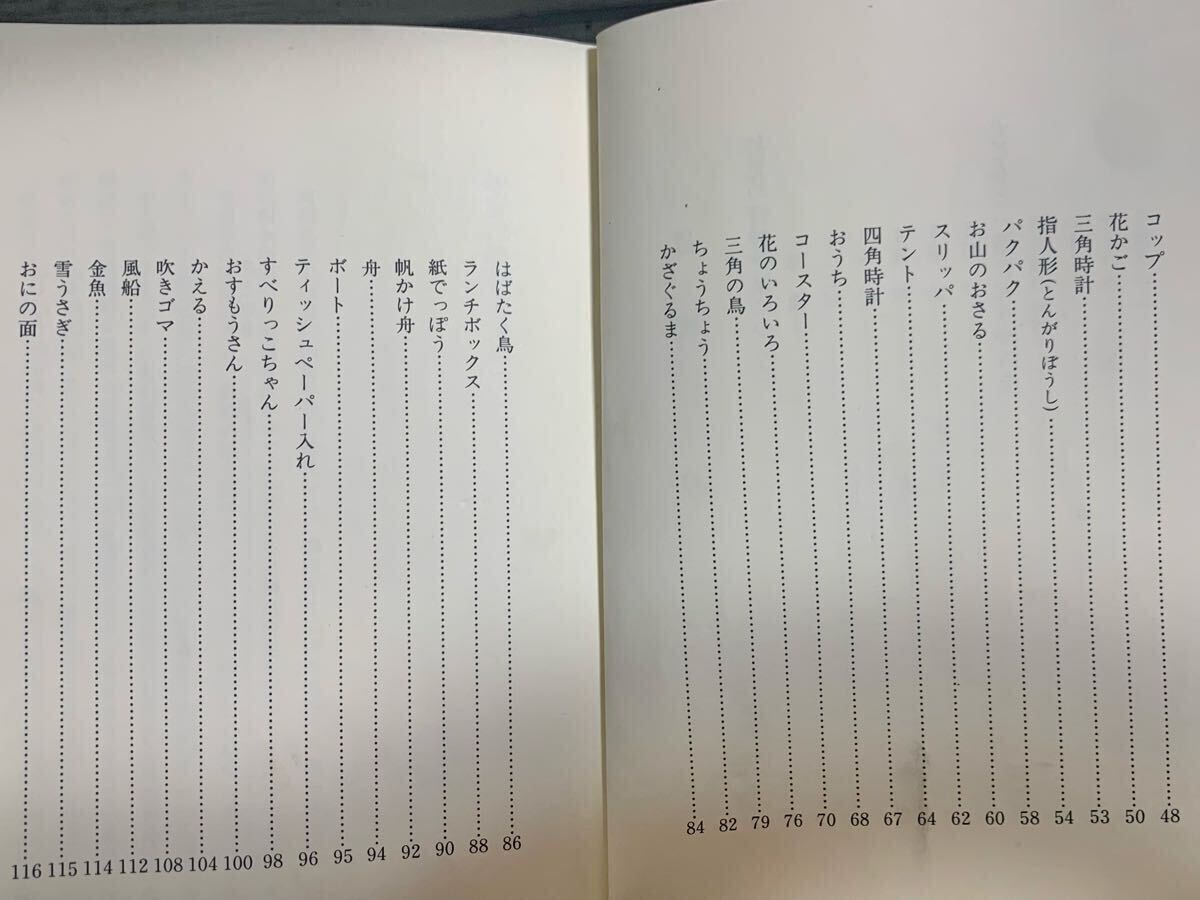 コップ……48
花かご……50
三角時計……53
指人形(とんがりぼうし)……54
パクパク……58
お山のおさる……60
スリッパ……62
テント……64
四角時計……67
おうち……68
コースター……70
花のいろいろ……76
三角の鳥……79
ちょうちょう……82
かざぐるま……84
はばたく鳥……86
ランチボックス……88
紙でっぽう……90
帆かけ舟……92
舟……94
ボート……95
ティッシュペーパー入れ……96
すべりっこちゃん……98
おすもうさん……100
かえる……104
吹きゴマ……108
風船……112
金魚……114
雪うさぎ……115
おにの面……116